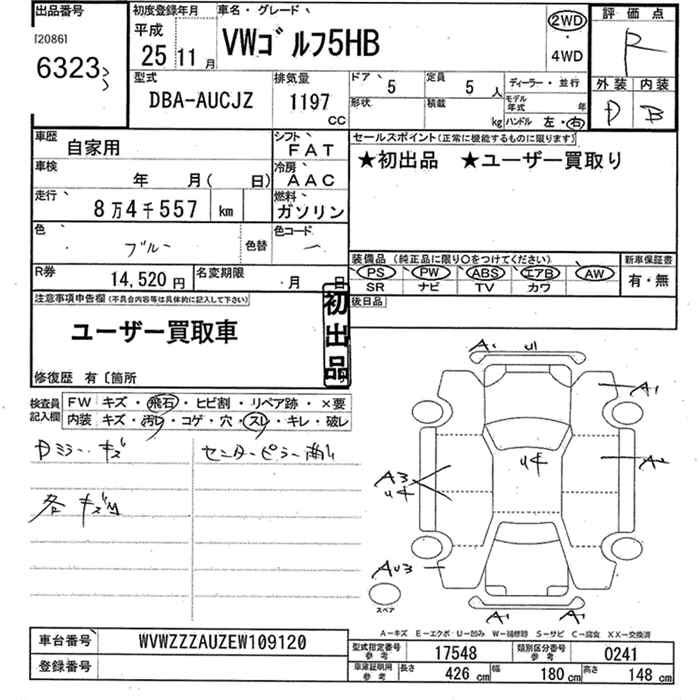 出品番号
[2086]
6323
初度登録年月
平成
25 11月
車名・グレード
VWゴルフ5HB
2WD
・
4WD
評価点
R
外装 内装
D B
型式
DBA-AUCJZ
排気量
1197
CC
ドア 5
定員 5人
ディーラー・並行
形状
積載 kg
モデル年式 年
ハンドル 左・右
車歴 自家用
シフト FAT
セールスポイント(正常に機能するものに限ります)
★初出品 ★ユーザー買取り
車検 年 月( 日)
冷房 AAC
走行 8万4千557 km
燃料 ガソリン
色 ブルー
色替
色コード ー
装備品 (純正品に限り○をつけてください)
新車保証書
PS PW ABS エアB AW
SR ナビ TV カワ
有・無
R券 14,520円
名変期限 ・月 日
後日品
注意事項申告欄(不具合内容等は具体的に記入して下さい)
初出品
ユーザー買取車
修復歴 有〔箇所
検査員記入欄
FW キズ・飛石・ヒビ割・リペア跡・×要
内装 キズ・汚レ・コゲ・穴・スレ・キレ・破レ
Dミラーキズ
センターピラー
各キズ
A1 U1
A1
A2
A3
U4
U4
AU3
A1 A1
スペア
A-キズ E-エクボ U-凹み W-補修跡 S-サビ C-腐食 XX-交換済
車台番号 WVWZZZAUZEW109120
登録番号
型式指定番号 参考 17548
類別区分番号 参考 0241
車庫証明用 参考 長さ 426 cm 幅 180 cm 高さ 148 cm